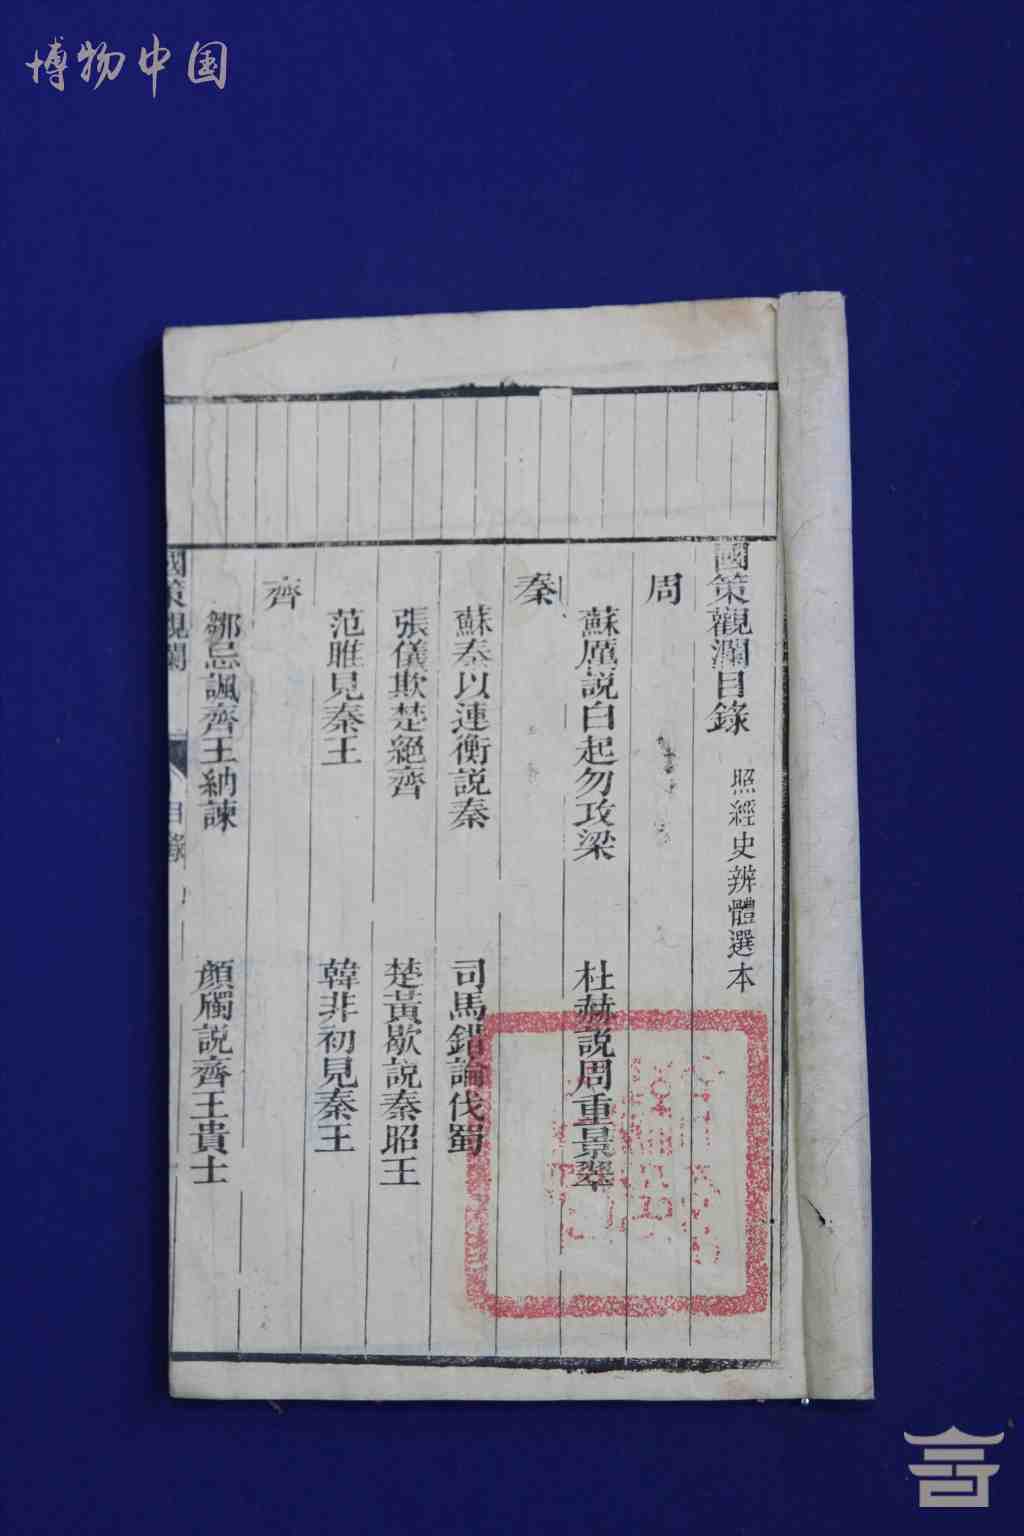 博物中国
國策觀瀾目錄 照經史辨體選本
周
蘇厲説白起勿攻梁 杜赫説周重景翠
秦
蘇秦以連衡説秦 司馬錯論伐蜀
張儀欺楚絕齊 楚黃歇説秦昭王
范雎見秦王 韓非初見秦王
齊
鄒忌諷齊王納諫 顏斶説齊王貴士
國策觀瀾 目錄